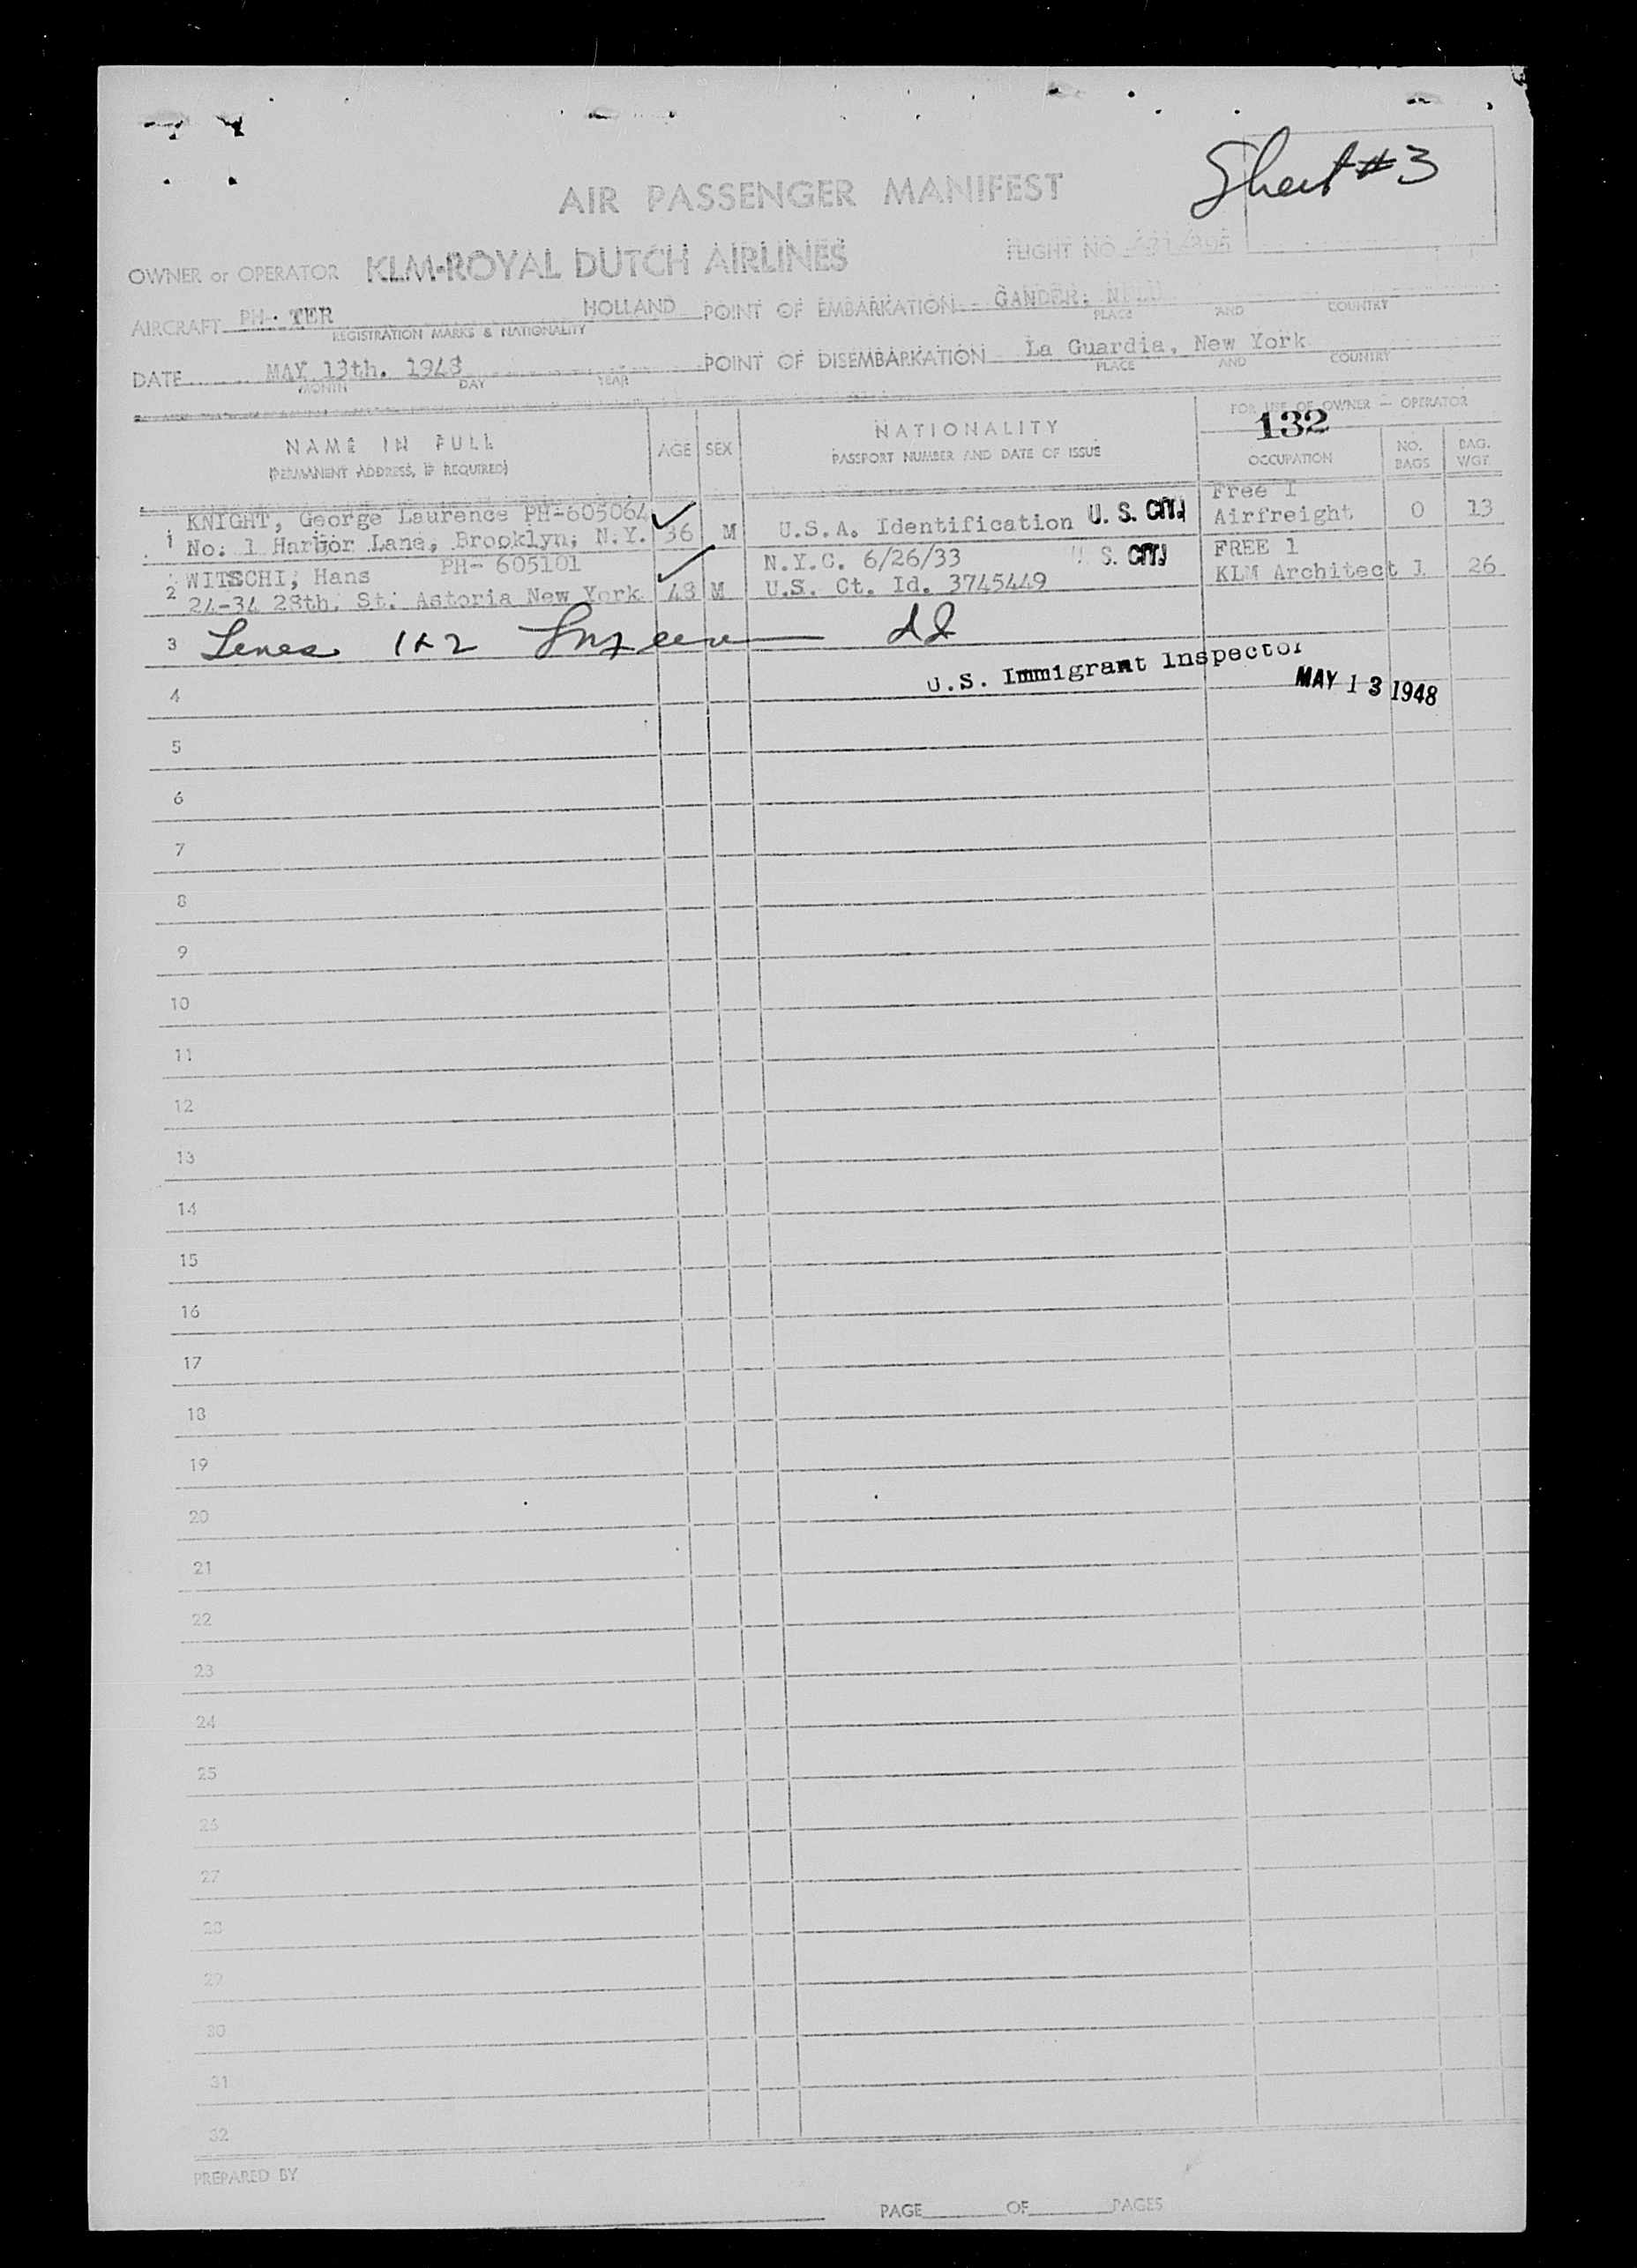 Sheet #3
AIR PASSENGER MANIFEST
OWNER or OPERATOR KLM-ROYAL DUTCH AIRLINES FLIGHT NO.
AIRCRAFT PH-TER HOLLAND POINT OF EMBARKATION GANDER,
REGISTRATION MARKS & NATIONALITY PLACE AND COUNTRY
DATE MAY 13th. 1948 POINT OF DISEMBARKATION La Guardia, New York
MONTH DAY YEAR PLACE AND COUNTRY
FOR USE OF OWNER - OPERATOR
132
NAME IN FULL AGE SEX NATIONALITY OCCUPATION NO. BAGS BAG. WGT.
(PERMANENT ADDRESS, IF REQUIRED) PASSPORT NUMBER AND DATE OF ISSUE
KNIGHT, George Laurence PH-605064 Free 1
1 No. 1 Harbor Lane, Brooklyn, N.Y. 36 M U.S.A. Identification U. S. CIT. Airfreight 0 13
WITSCHI, Hans PH- 605101 N.Y.C. 6/26/33 U. S. CIT. FREE 1
2 24-34 28th. St. Astoria New York 48 M U.S. Ct. Id. 3745449 KLM Architect 1 26
3 Lines 1 & 2
U.S. Immigrant Inspector
4 MAY 13 1948
5
6
7
8
9
10
11
12
13
14
15
16
17
18
19
20
21
22
23
24
25
26
27
28
29
30
31
32
PREPARED BY
PAGE OF PAGES